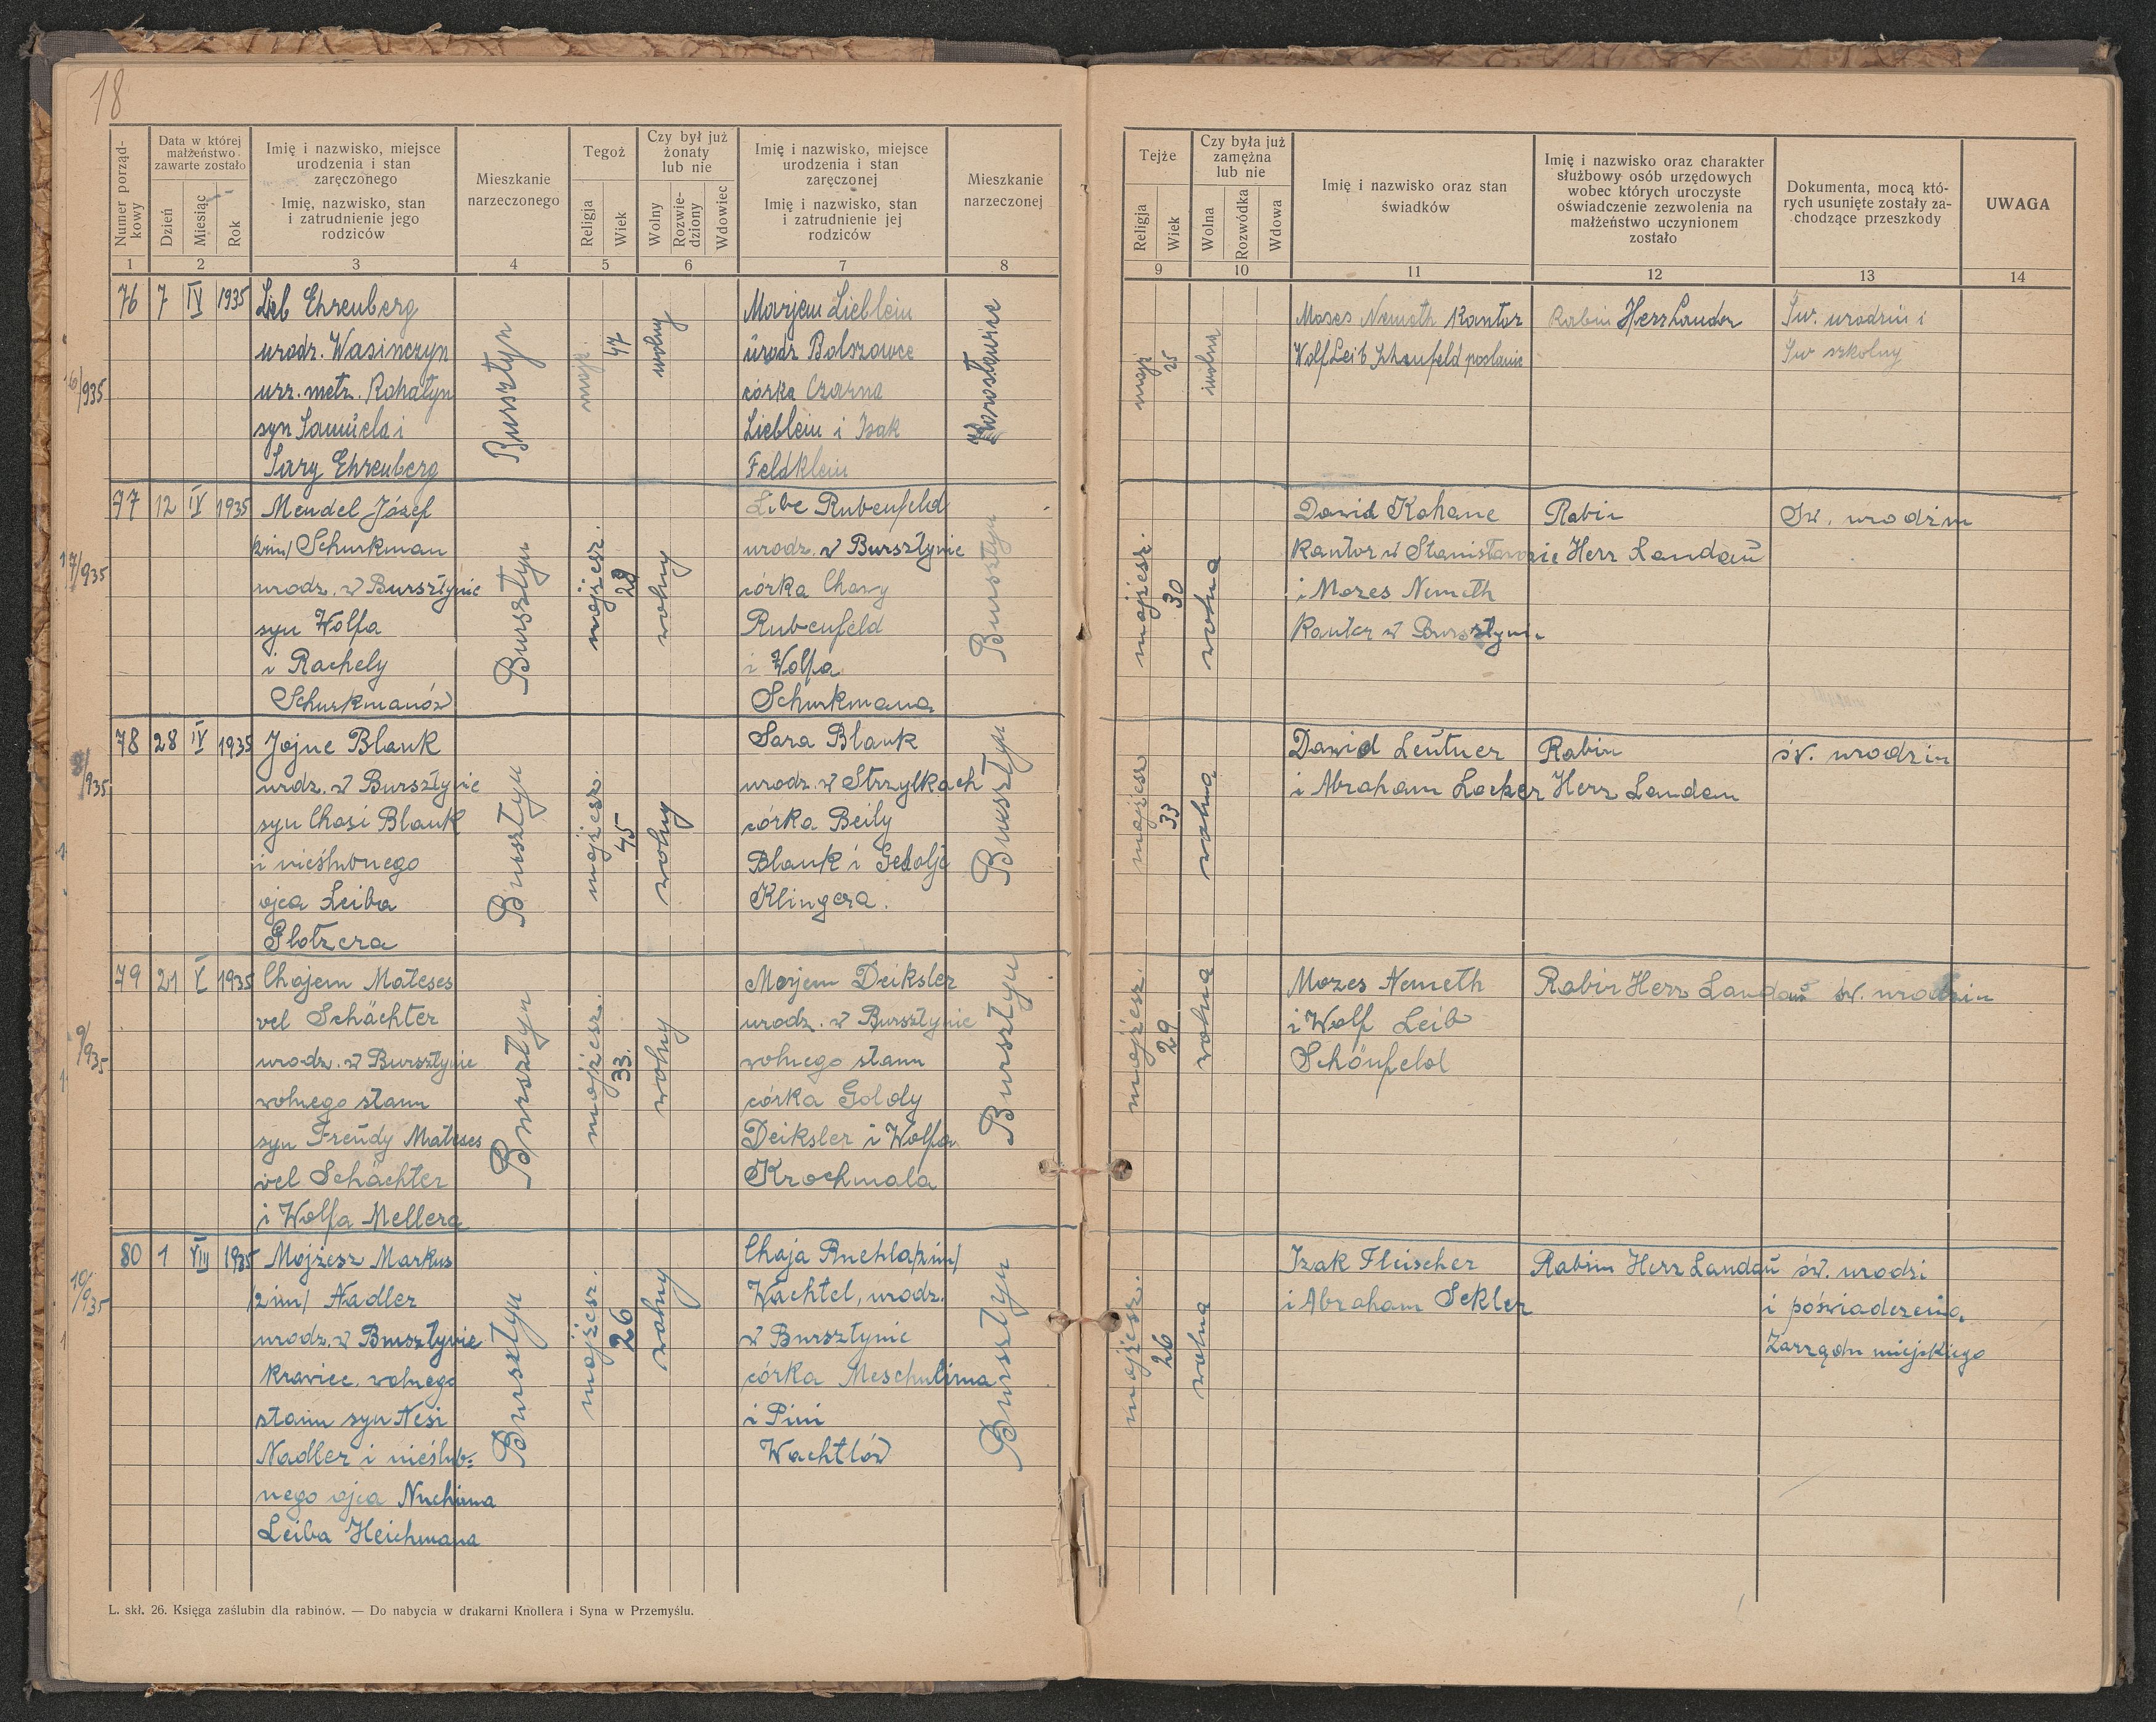 18
Numer porząd-
kowy
Data w której
małżeństwo
zawarte zostało
Dzień
Miesiąc
Rok
Imię i nazwisko, miejsce
urodzenia i stan
zaręczonego
Imię, nazwisko, stan
i zatrudnienie jego
rodziców
Mieszkanie
narzeczonego
Tegoż
Religja
Wiek
Czy był już
żonaty
lub nie
Wolny
Rozwie-
dziony
Wdowiec
Imię i nazwisko, miejsce
urodzenia i stan
zaręczonej
Imię i nazwisko, stan
i zatrudnienie jej
rodziców
Mieszkanie
narzeczonej
Tejże
Religja
Wiek
Czy była już
zamężna
lub nie
Wolna
Rozwódka
Wdowa
Imię i nazwisko oraz stan
świadków
Imię i nazwisko oraz charakter
służbowy osób urzędowych
wobec których uroczyste
oświadczenie zezwolenia na
małżeństwo uczynionem
zostało
Dokumenta, mocą któ-
rych usunięte zostały za-
chodzące przeszkody
UWAGA
1 2 3 4 5 6 7 8 9 10 11 12 13 14
76 7 IV 1935
Leib Ehrenberg
urodz. Wasinczyn
urz. metr. Rohatyn
syn Samuela i
Sary Ehrenberg
Bursztyn
mojż.
47
wolny
Marjem Lieblein
urodz Bolszowce
córka Czarna
Lieblein i Izak
Feldklein
mojż
25
wolna
Moses Nemeth Kantor
Wolf Leib Schenfeld posłaniec
Rabin Herz Landau
Św. urodzin i
Św szkolny
7/935
77 12 IV 1935
Mendel Józef
/2 im/ Schurkman
urodz. w Bursztynie
syn Wolfa
i Rachely
Schurkmanów
Bursztyn
mojżesz.
28
wolny
Libe Rubenfeld
urodz. w Bursztynie
córka Chawy
Rubenfeld
i Wolfa
Schurkmana
Bursztyn
mojżesz.
30
wolna
Dawid Kahane
Kantor w Stanisławowie
i Mozes Nemeth
Kantor w Bursztynie
Rabin
Herz Landau
Św. urodzin
8/935
78 28 IV 1935
Jojne Blank
urodz. w Bursztynie
syn Chasi Blank
i nieślubnego
ojca Leiba
Glotzera
Bursztyn
mojżesz.
45
wolny
Sara Blank
urodz. w Strzylkach
córka Beily
Blank i Gedalje
Klingera.
Bursztyn
mojżesz
33
wolna
Dawid Leutner
i Abraham Locker
Rabin
Herz Landau
św. urodzin
9/935
79 21 V 1935
Chajem Mateses
vel Schächter
urodz. w Bursztynie
wolnego stanu
syn Freudy Mateses
vel Schächter
i Wolfa Mellera
Bursztyn
mojżesz.
33.
wolny
Marjem Deiksler
urodz. w Bursztynie
wolnego stanu
córka Goldy
Deiksler i Wolfa
Krochmala
Bursztyn
mojżesz.
29
wolna
Mozes Nemeth
i Wolf Leib
Schönfeld
Rabin Herz Landau
św. urodzin
10/935
80 1 VIII 1935
Mojżesz Markus
/2 im/ Nadler
urodz. w Bursztynie
krawiec. wolnego
stanu syn Nesi
Nadler i nieślub=
nego ojca Nuchima
Leiba Heichmana
Bursztyn
mojżesz.
26
wolny
Chaja Ruchla /2 im/
Wachtel, urodz.
w Bursztynie
córka Meschulima
i Pini
Wachtlów
Bursztyn
mojżesz.
26
wolna
Izak Fleischer
i Abraham Sekler
Rabin Herz Landau
św. urodzi
i poświadczenia
Zarządu miejskiego
L. skł. 26. Księga zaślubin dla rabinów. — Do nabycia w drukarni Knollera i Syna w Przemyślu.